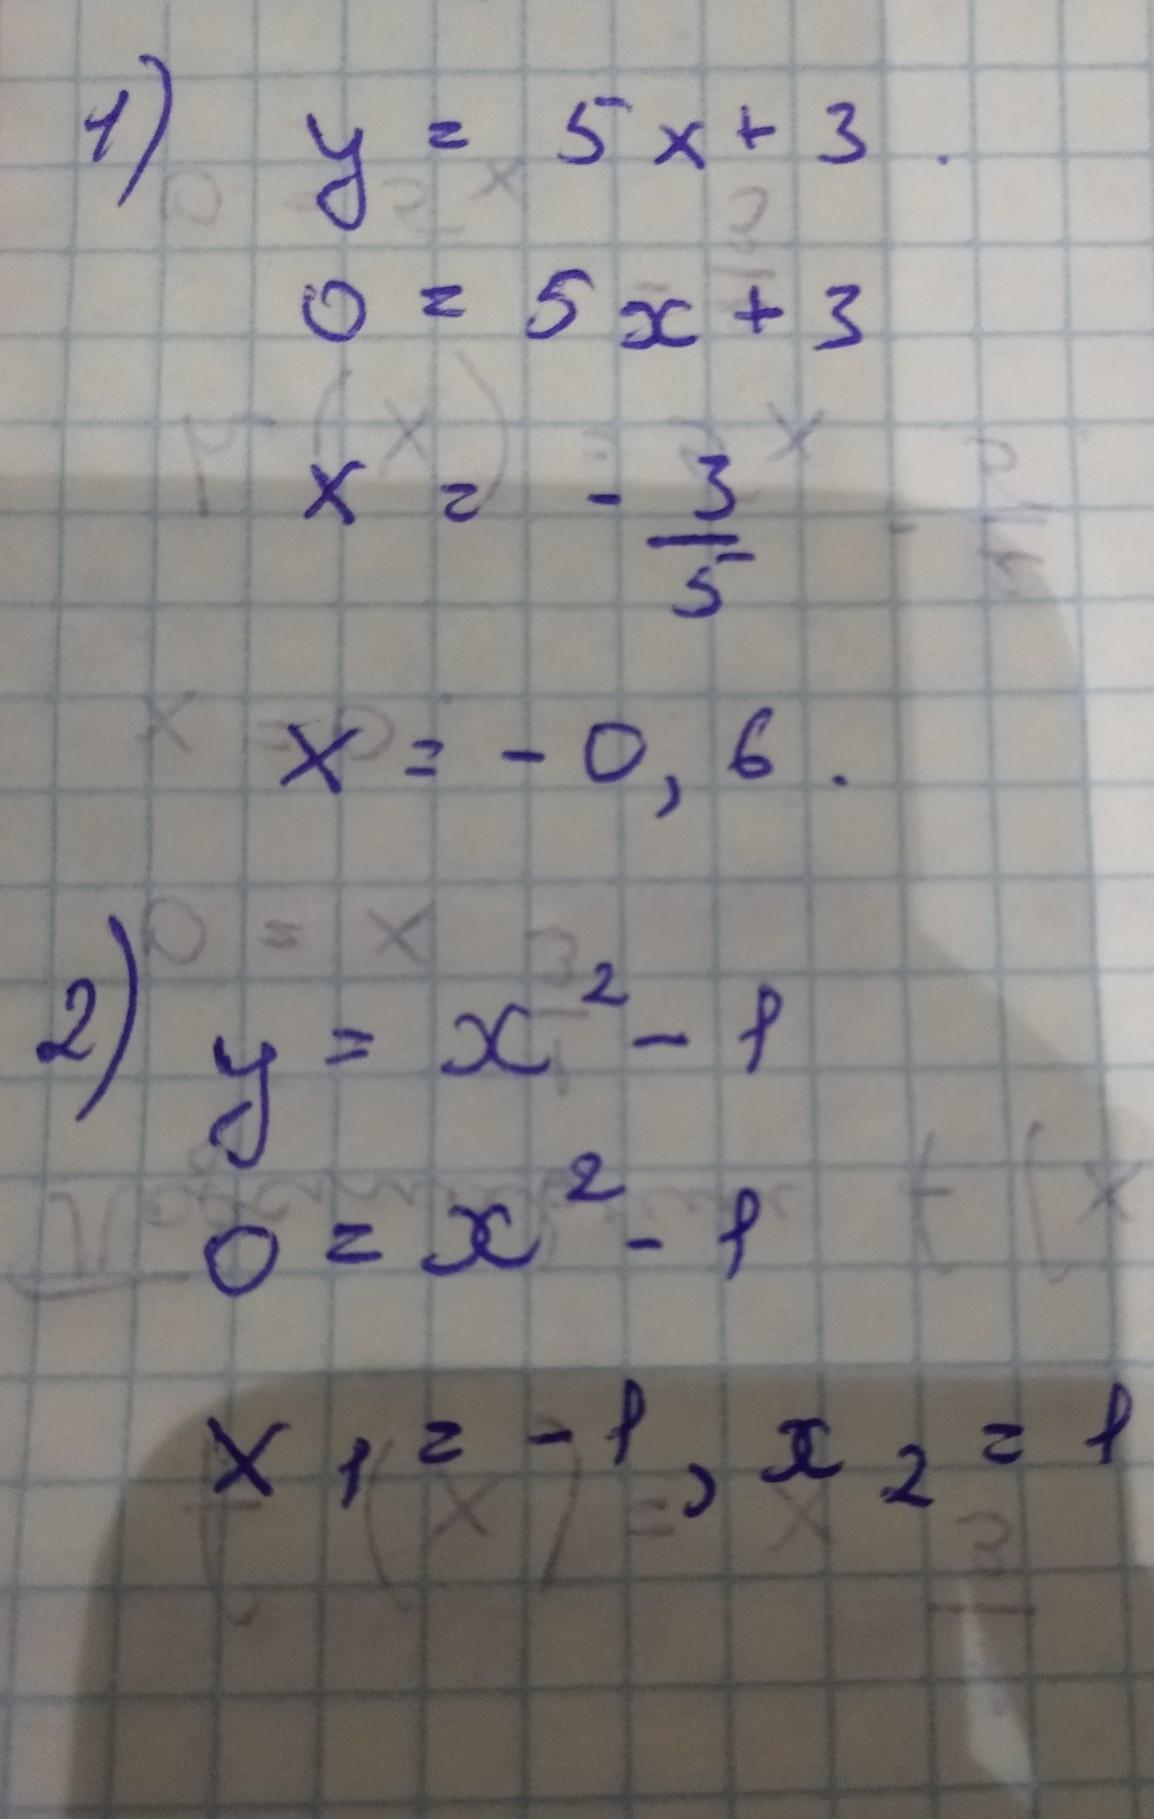 1) y = 5x + 3.
0 = 5x + 3
x = - 3/5
x = - 0,6.
2) y = x² - 1
0 = x² - 1
x₁ = -1, x₂ = 1